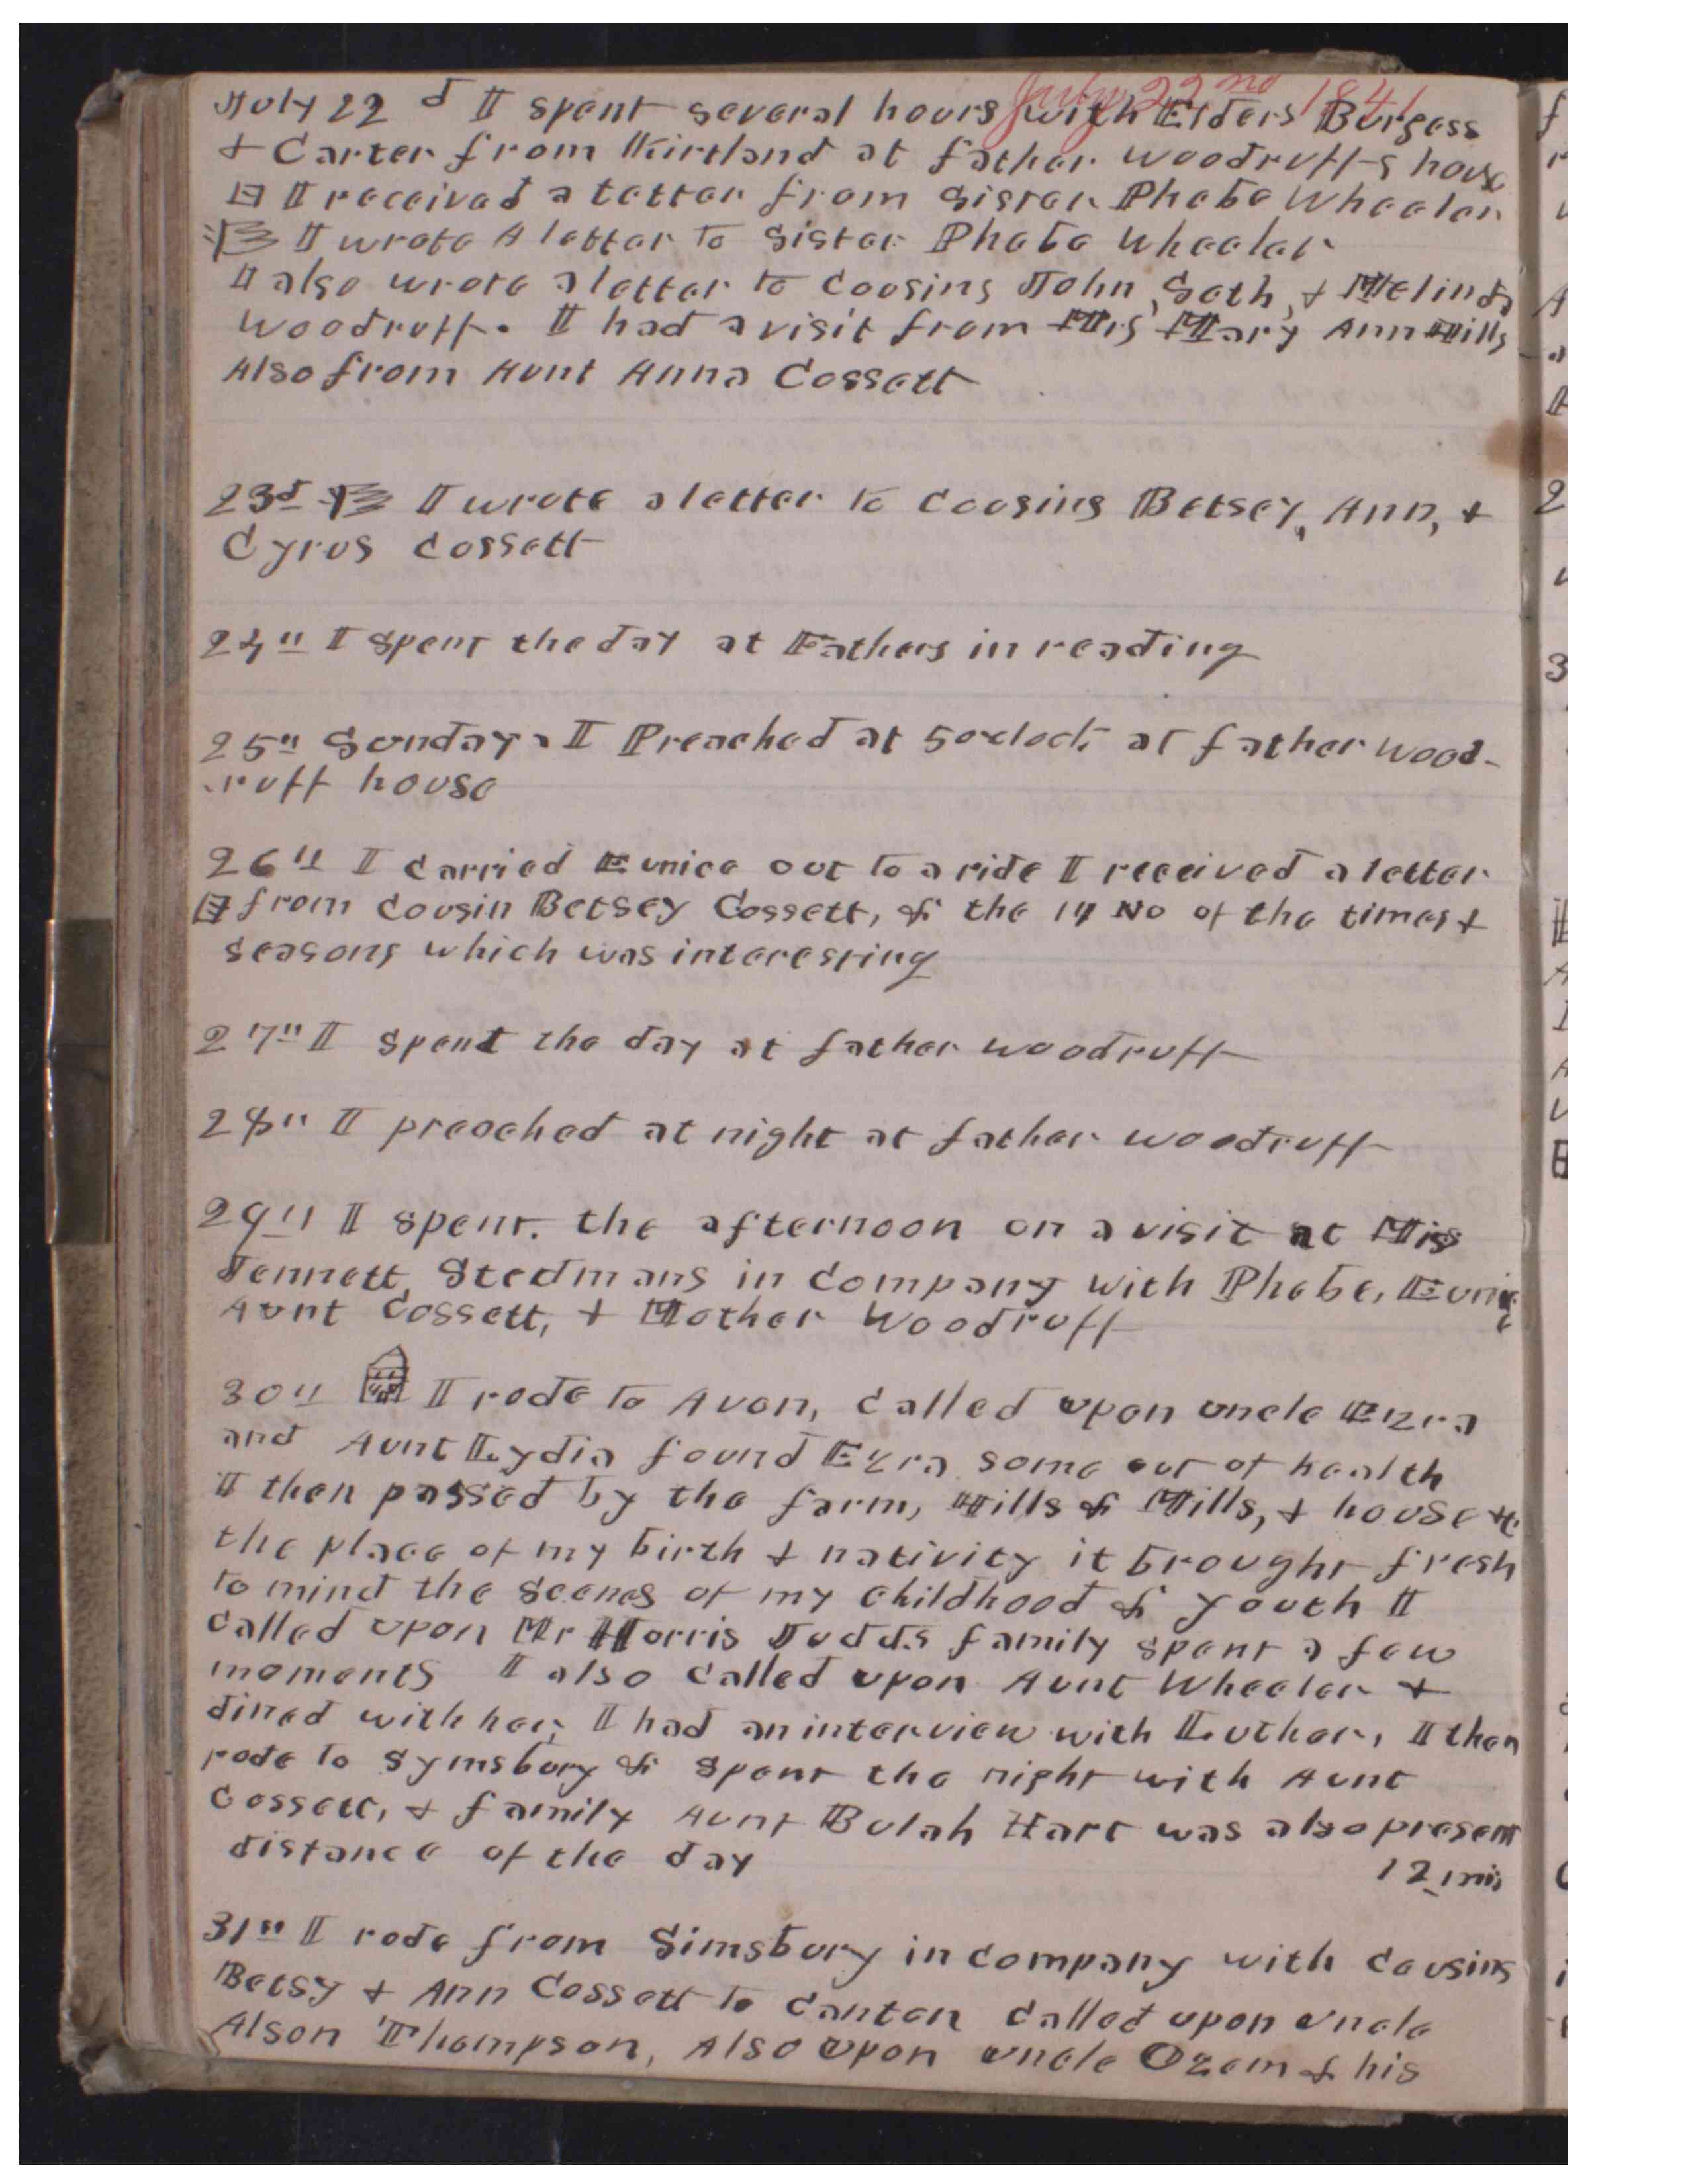 July 22nd 1841
July 22d I spent several hours with Elders Burgess
& Carter from Kirtland at father woodruffs house
I received a letter from Sister Phebe Wheeler
I wrote A letter to Sister Phebe Wheeler
I also wrote a letter to Cousins John, Seth, & Melinda
Woodruff. I had a visit from Mrs Mary Ann Hills
Also from Aunt Anna Cossett
23d I wrote a letter to Cousins Betsey, Ann, &
Cyrus Cossett
24" I spent the day at Fathers in reading
25" Sunday I Preached at 5 oclock at father Wood-
ruff house
26" I carried Eunice out to a ride I received a letter
from Cousin Betsey Cossett, & the 14 No of the times &
seasons which was interesting
27" I spent the day at father woodruff
28" I preached at night at father woodruff
29" I spent. the afternoon on a visit at Mis
Jennett Stedmans in company with Phebe, Eunice
Aunt Cossett, & Mother Woodruff
30" I rode to Avon, called upon uncle Ezra
and Aunt Lydia found Ezra some out of health
I then passed by the farm, Hills & Mills, & house &c
the place of my birth & nativity it brought fresh
to mind the scenes of my childhood & youth I
called upon Mr Horris Judds family spent a few
moments I also called upon Aunt Wheeler &
dined with her, I had an interview with Luther, I then
rode to Symsbury & spent the night with Aunt
Cossett, & family Aunt Bulah Hart was also present
distance of the day 12 mis
31" I rode from Simsbury in company with cousins
Betsy & Ann Cossett to Canton Called upon uncle
Alson Thompson, Also upon uncle Ozem & his